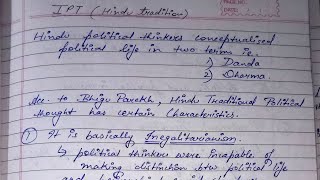 IPT (Hindu Tradition)
PAGE NO.
DATE
Hindu political thinkers conceptualised
political life in two terms i.e.
1) Danda
2) Dharma.
Acc. to Bhigu Parekh, Hindu Traditional Political
thought has certain characteristics.
1) It is basically Inegalitarianism.
↳ political thinkers were incapable of
making distinction btw political life
and